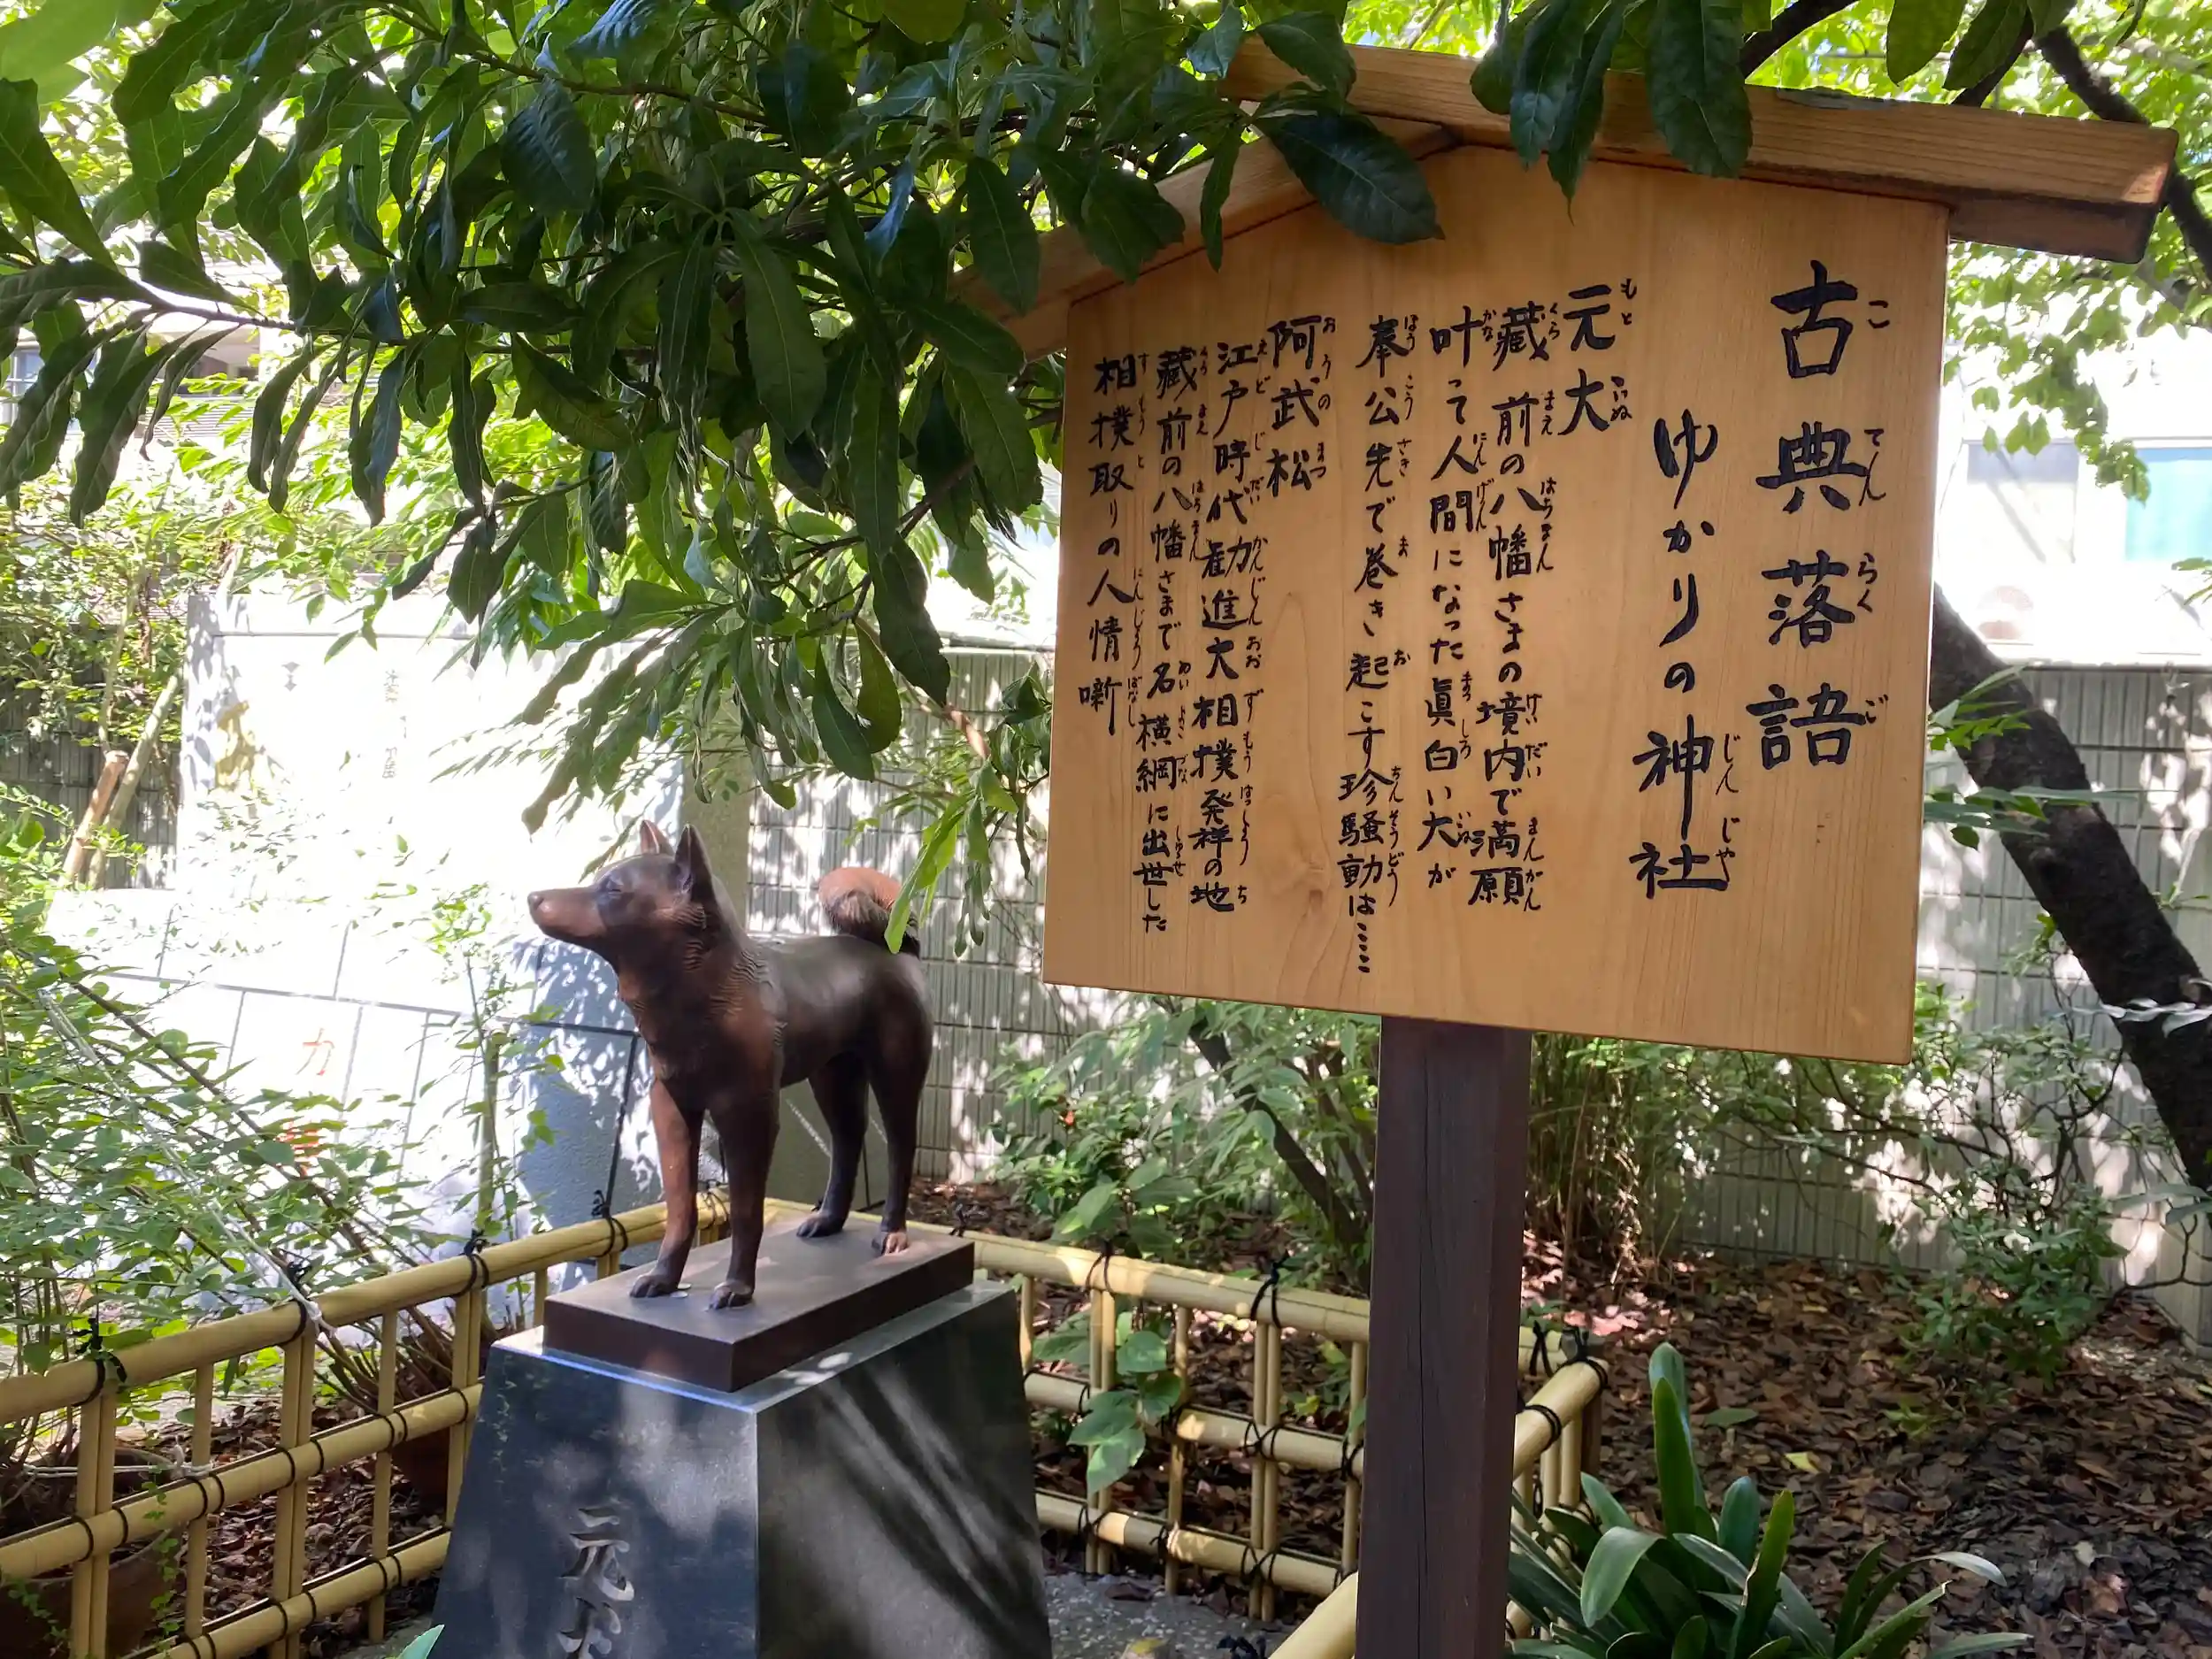 古典落語
ゆかりの神社
元犬
藏前の八幡さまの境内で満願
叶って人間になった眞白い犬が
奉公先で巻き起こす珍騒動は……
阿武松
江戸時代勧進大相撲発祥の地
藏前の八幡さまで名横綱に出世した
相撲取りの人情噺
元犬
力